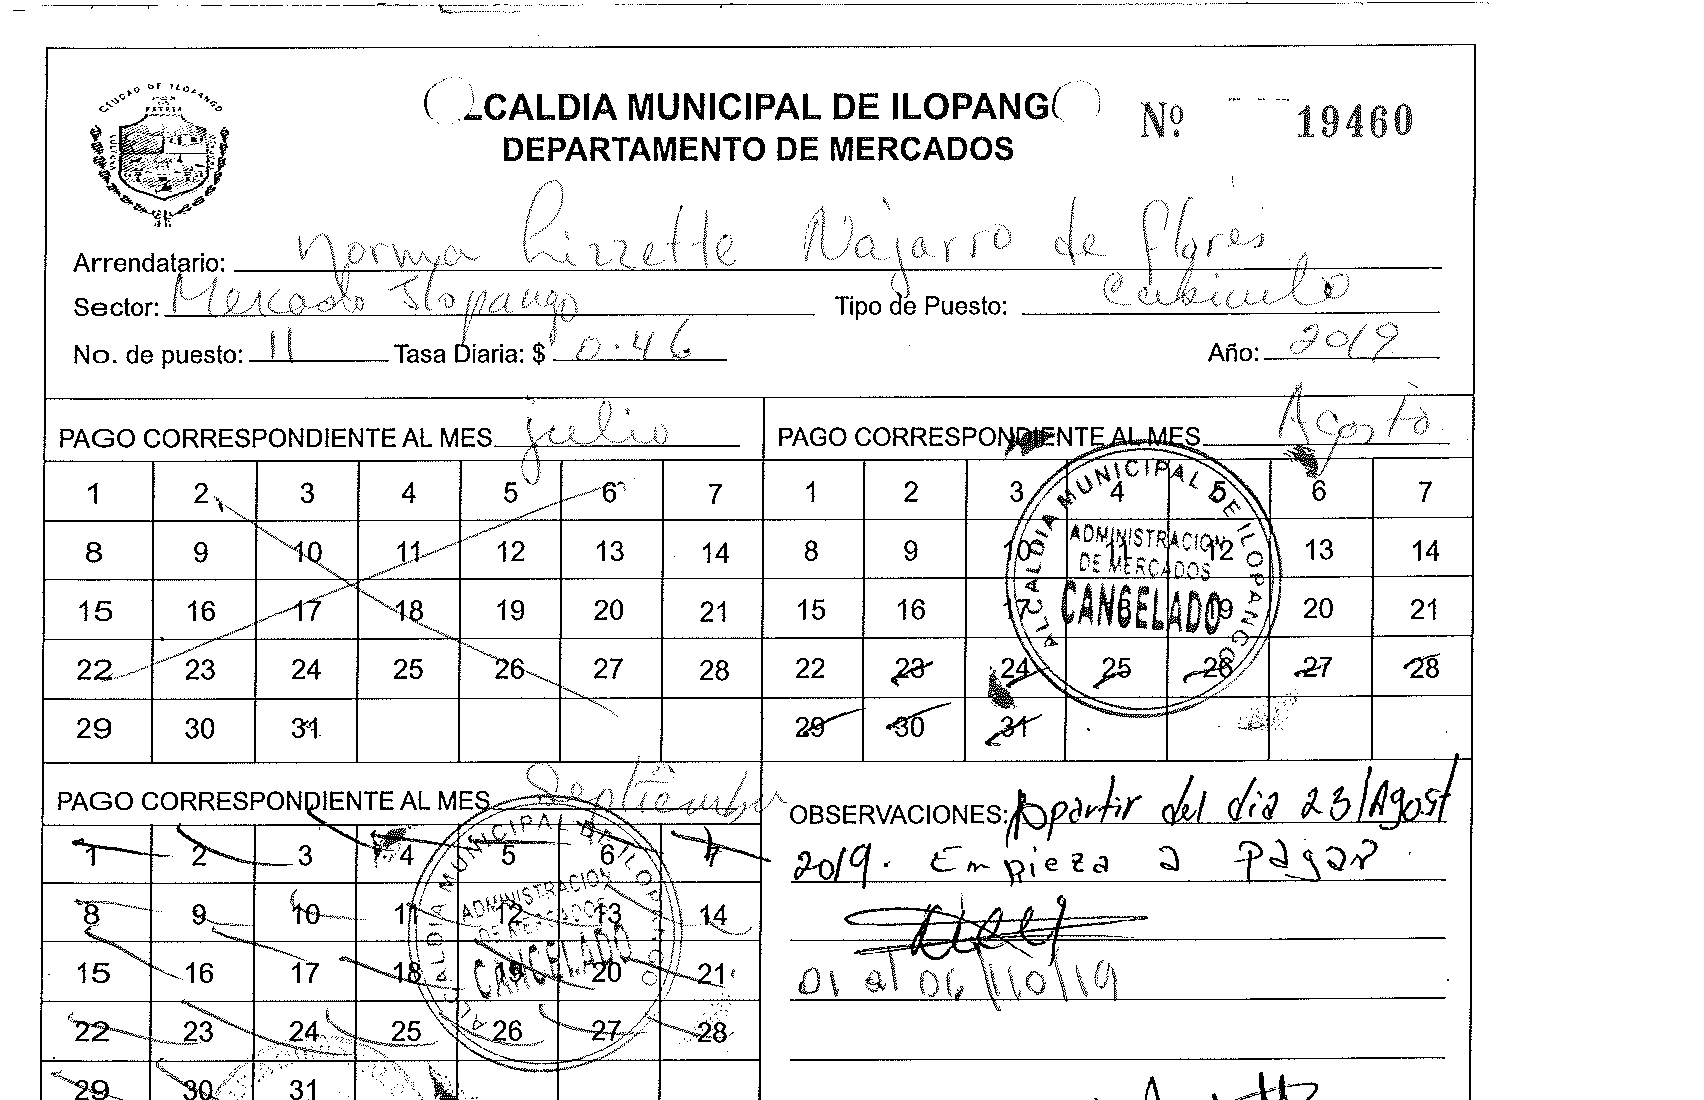 CIUDAD DE ILOPANGO
ALCALDIA MUNICIPAL DE ILOPANGO
DEPARTAMENTO DE MERCADOS
Nº 19460
Arrendatario: Norma Lizzette Najarro de Flores
Sector: Mercado Ilopango Tipo de Puesto: Cubiculo
No. de puesto: 11 Tasa Diaria: $ 0.46 Año: 2019
PAGO CORRESPONDIENTE AL MES julio
1 2 3 4 5 6 7
8 9 10 11 12 13 14
15 16 17 18 19 20 21
22 23 24 25 26 27 28
29 30 31
PAGO CORRESPONDIENTE AL MES Agosto
1 2 3 4 5 6 7
8 9 10 11 12 13 14
15 16 17 18 19 20 21
22 23 24 25 26 27 28
29 30 31
ALCALDIA MUNICIPAL DE ILOPANGO
ADMINISTRACION
DE MERCADOS
CANCELADO
PAGO CORRESPONDIENTE AL MES Septiembre
1 2 3 4 5 6 7
8 9 10 11 12 13 14
15 16 17 18 19 20 21
22 23 24 25 26 27 28
29 30 31
ALCALDIA MUNICIPAL DE ILOPANGO
ADMINISTRACION
DE MERCADOS
CANCELADO
OBSERVACIONES: Apartir del dia 23/Agost
2019. Empieza a pagar
01 al 06/10/19